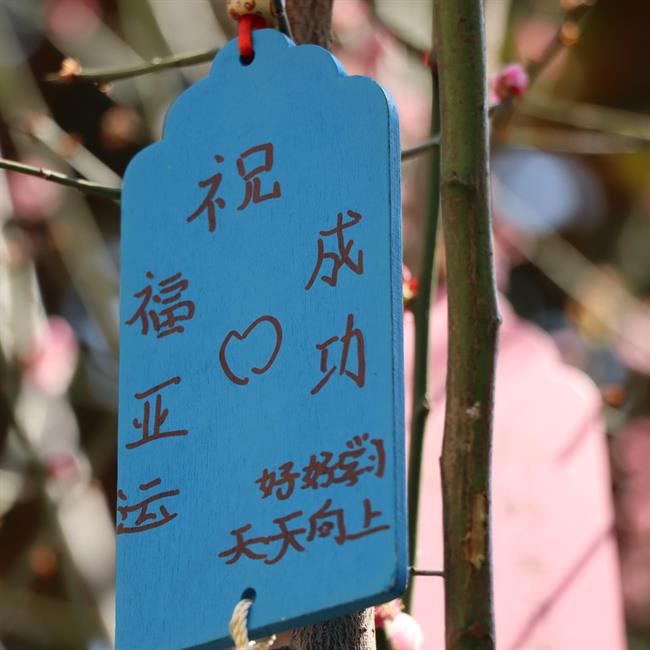 祝福亚运
成功
好好学习
天天向上